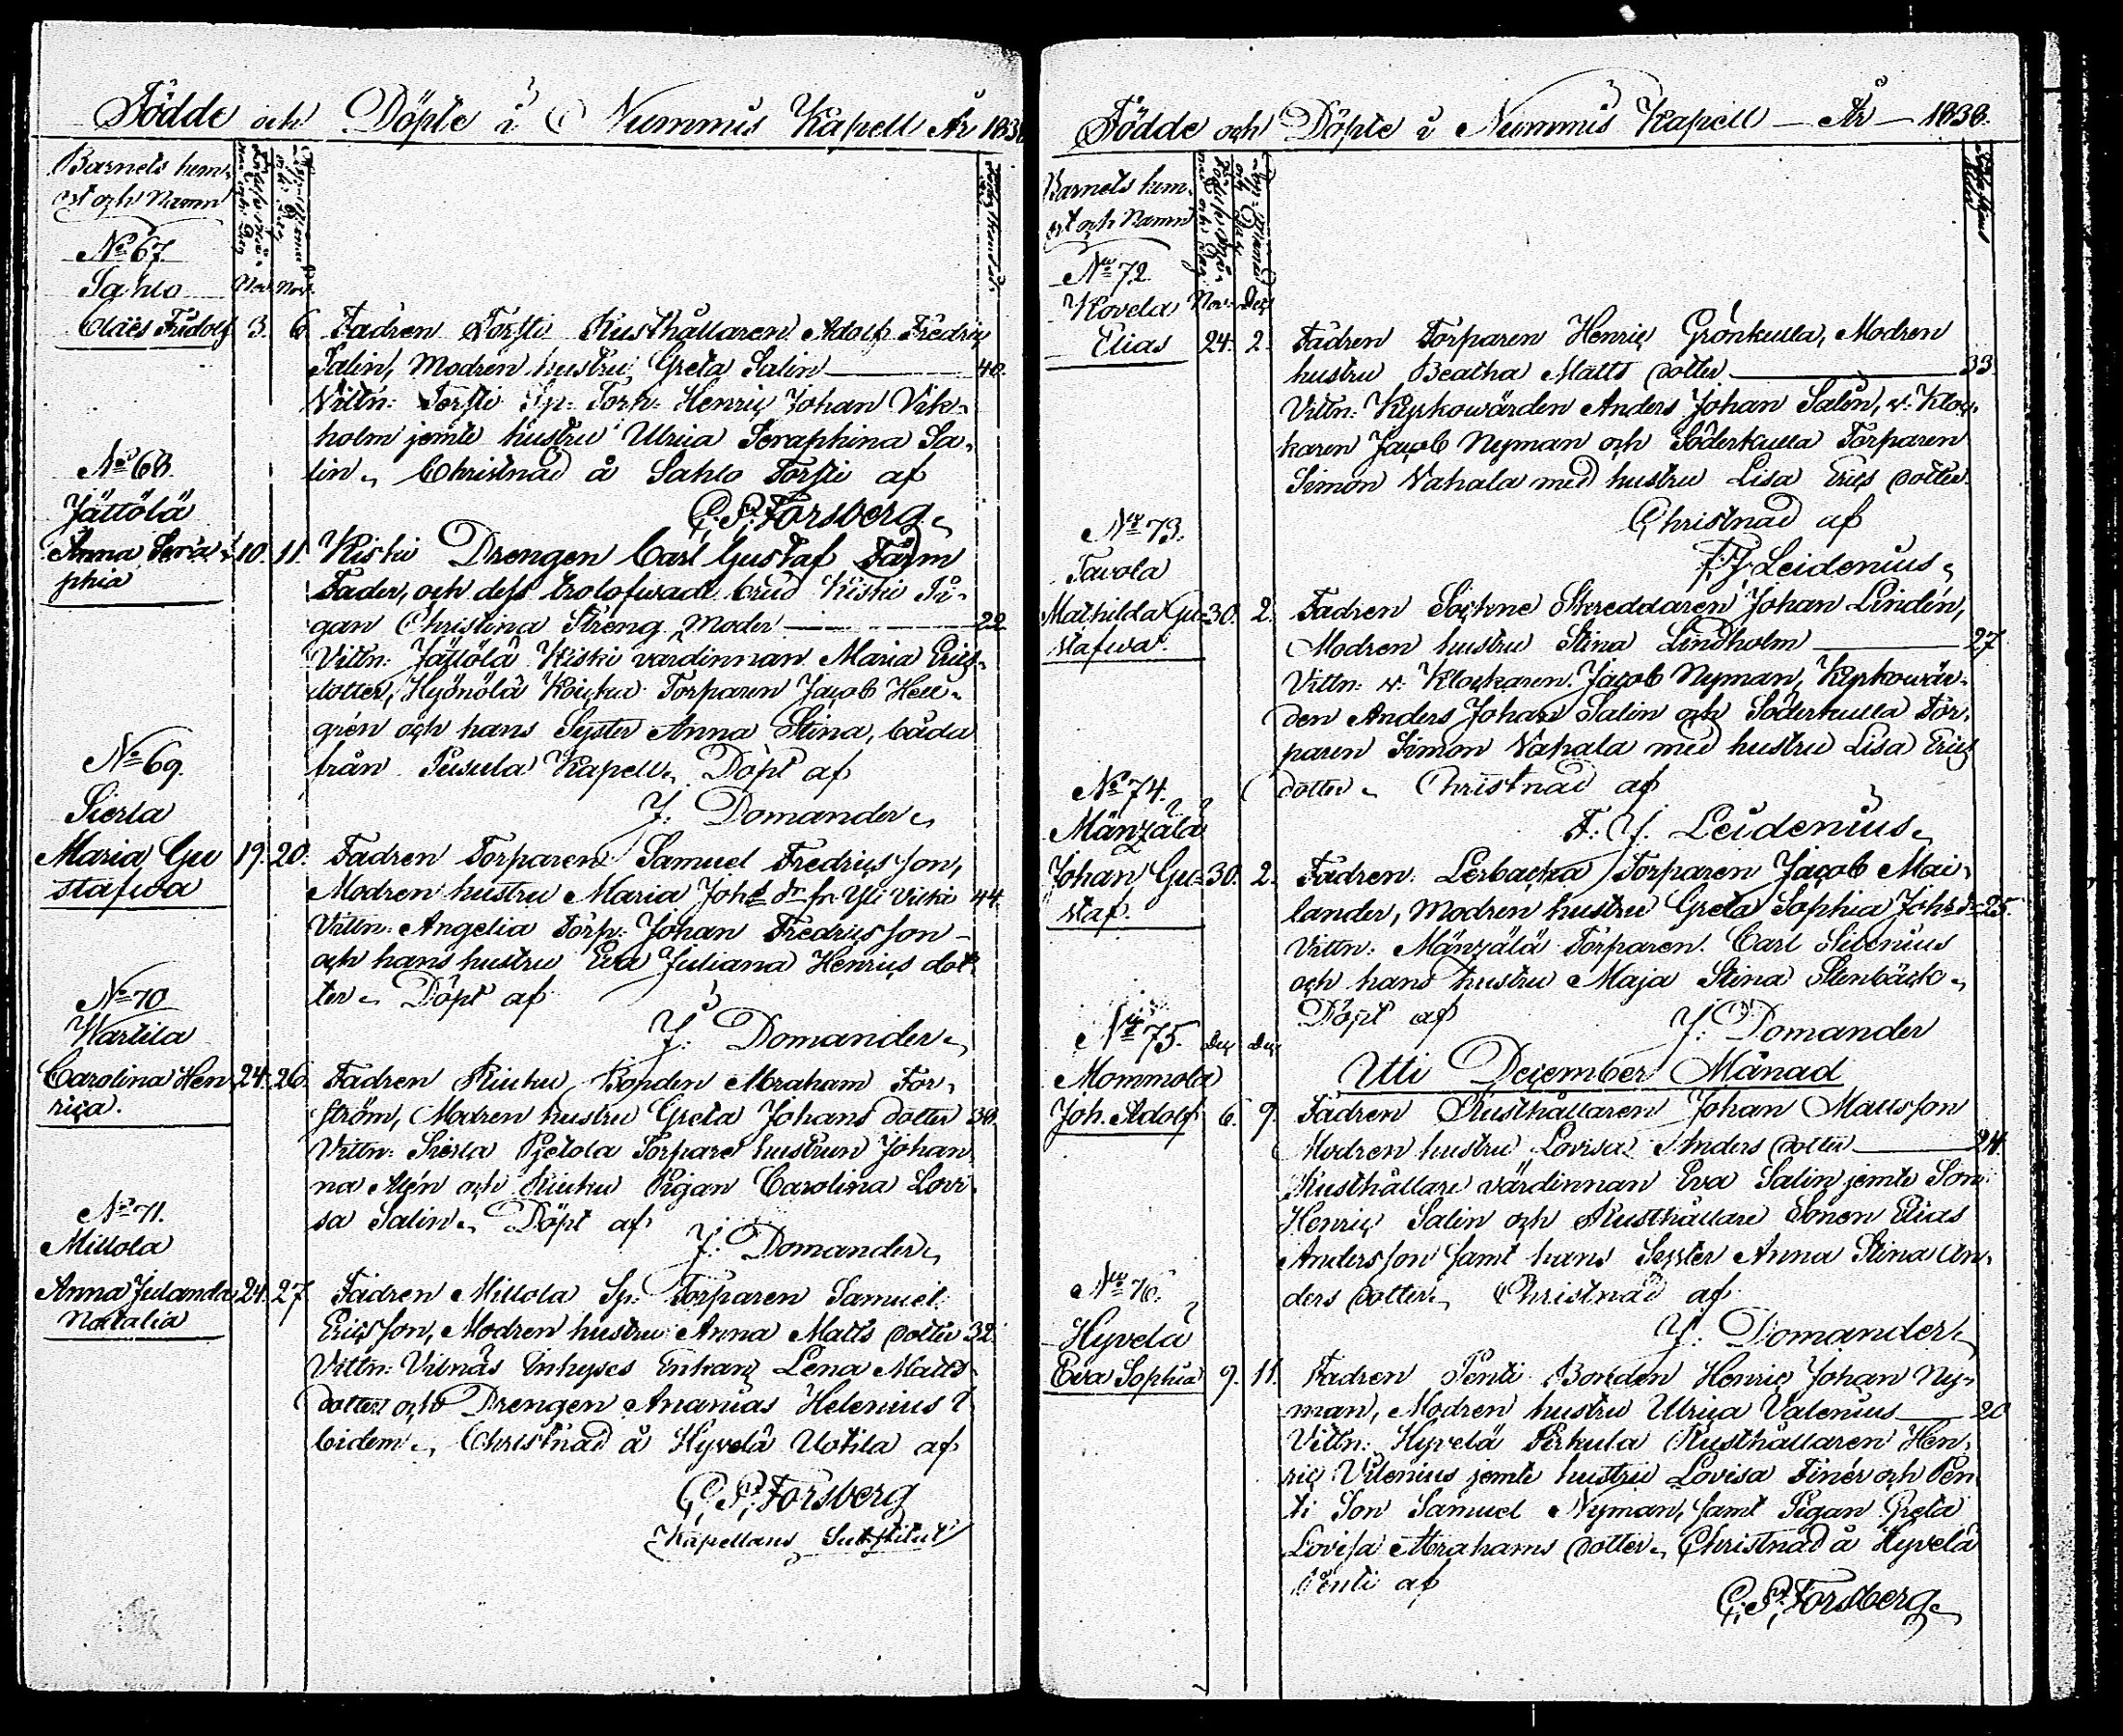 Födde och Döpte i Nummis Kapell År 183
Barnets hem-
ort och Namn
No 67.
Sahlo Nov. Nov.
Claes Fridolf 3. 6. Fadren Torsti Rusthållaren Adolf Fredric
Salin, Modren hustru Greta Salin 40.
Vittn: Torsti Sp: Torp: Henric Johan Vik-
holm jemte hustru Ulrica Seraphina Sa-
lin. Christnad å Sahlo Torsti af
C. P. Forsberg.
No 68.
Jättölä
Anna Sera- 10. 11. Kiski Drengen Carl Gustaf Farm
phia
Fader, och dess trolofwade brud Kiski Pi-
gan Christina Streng Moder 22
Vittn: Jättölä Kiski värdinnan Maria Erics-
dotter, Hyönölä Torparen Jacob Hell-
grén och hans Syster Anna Stina, båda
från Pusula Kapell. Döpt af
J. Domander.
No 69.
Sierla
Maria Gu 19. 20. Fadren Torparen Samuel Fredricsson,
stafwa
Modren hustru Maria Johs dr fr. Yli Viski 44.
Vittn: Angelia Torp: Johan Fredricsson
och hans hustru Eva Juliana Henrics dot-
ter. Döpt af
J. Domander.
No 70
Wartila
Carolina Hen- 24. 26. Fadren Riuku Bonden Abraham For-
rica.
ström, Modren hustru Greta Johans dotter 30.
Vittn: Sierla Pietola Torpare hustrun Johan-
na Alén och Riuku Pigan Carolina Lovi-
sa Salin. Döpt af
J. Domander.
No 71.
Millola
Anna Julanda 24. 27. Fadren Millola Sp: Torparen Samuel
Natalia
Ericsson, Modren hustru Anna Matts dotter 32.
Vittn: Vilnäs Inhyses Enkan Lena Matts-
dotter och Drengen Ananias Helenius i
bidem. Christnad å Hyvelä Uotila af
C. P. Forsberg
Kapellans Substitut
Födde och Döpte i Nummis Kapell — År — 1838.
Barnets hem-
ort och Namn
No 72.
Kovela Nov. Dec.
Elias 24. 2. Fadren Torparen Henric Grönkulla, Modren
hustru Beatha Matts dotter 33.
Vittn: Kyrkowärden Anders Johan Salin, v: Kloc-
karen Jacob Nyman och Söderkulla Torparen
Simon Vahala med hustru Lisa Erics dotter.
Christnad af
F. J. Leidenius.
No 73.
Tavola
Mathilda Gu- 30. 2. Fadren Sockne Skreddaren Johan Lindén,
stafwa.
Modren hustru Stina Lindholm 27
Vittn: v: Klockaren Jacob Nyman, Kyrkowär-
den Anders Johan Salin och Söderkulla Tor-
paren Simon Vahala med hustru Lisa Erics
dotter. Christnad af
F. J. Leidenius.
No 74.
Mänzälä
Johan Gu- 30. 2. Fadren Lerbacka Torparen Jacob Mai-
staf.
lander, Modren hustru Greta Sophia Johs dr 25.
Vittn: Mänzälä Torparen Carl Sibenius
och hans hustru Maja Stina Stenbäck.
Döpt af J. Domander
Uti December Månad
No 75. Dec Dec
Mommola
Joh. Adolf 6. 9. Fadren Rusthållaren Johan Mattsson
Modren hustru Lovisa Anders dotter 24.
Rusthållare värdinnan Eva Salin jemte Son
Henric Salin och Rusthållare Sonen Elias
Andersson samt hans Syster Anna Stina An-
ders dotter. Christnad af
J. Domander.
No 76.
Hyvelä
Eva Sophia 9. 11. Fadren Penti Bonden Henric Johan Ny-
man, Modren hustru Ulrica Valenius 20
Vittn: Hyvelä Pirkula Rusthållaren Hen-
ric Vilenius jemte hustru Lovisa Finér och Pen-
ti Son Samuel Nyman, samt Pigan Greta
Lovisa Abrahams dotter. Christnad å Hyvelä
Penti af
C. P. Forsberg.